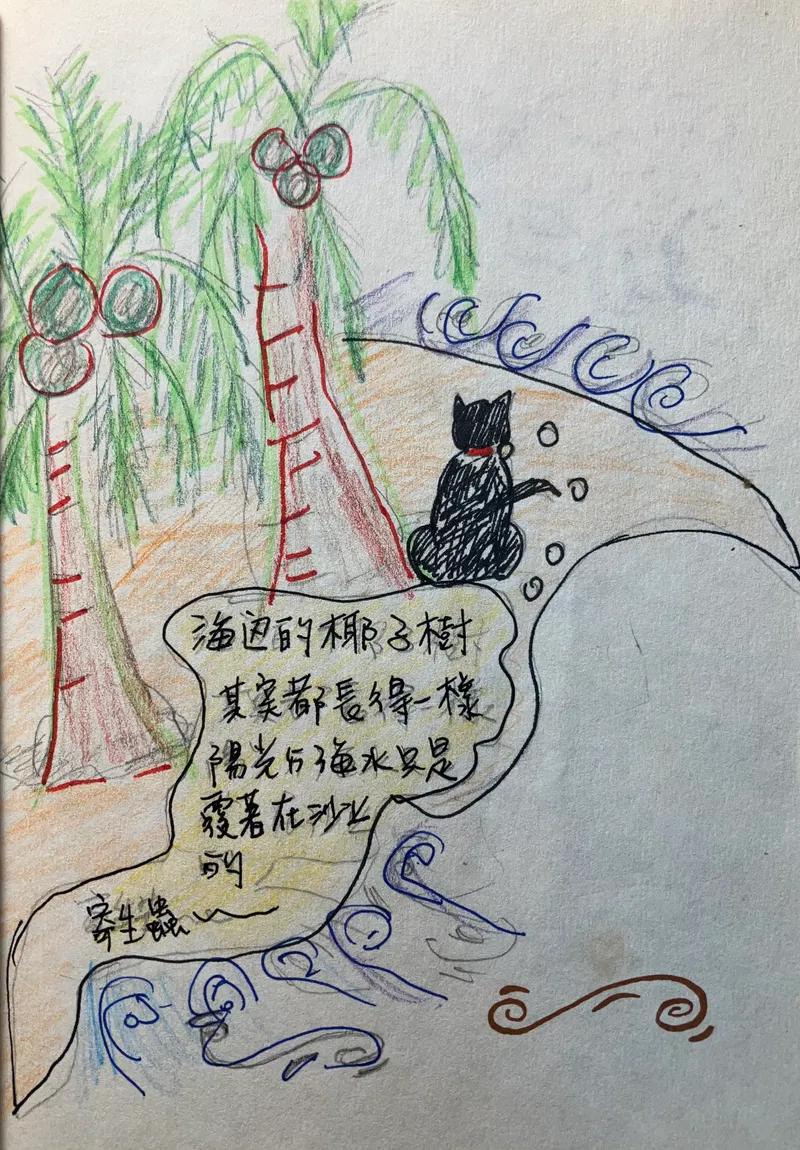 海边的椰子樹
其实都長得一樣
陽光与海水只是
覆著在沙上
的
寄生蟲